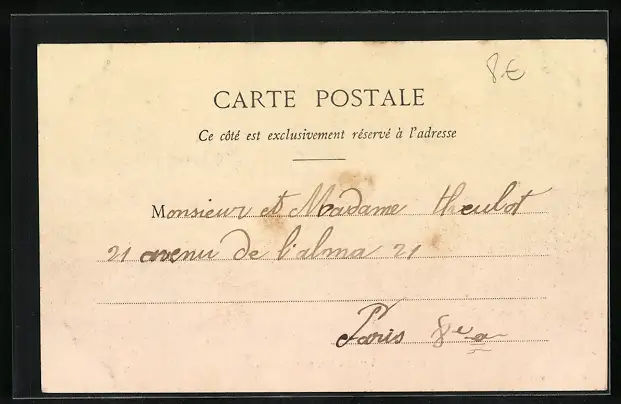 8€
CARTE POSTALE
Ce côté est exclusivement réservé à l'adresse
Monsieur et Madame Heulot
21 avenu de l'alma 21
Paris 8e a